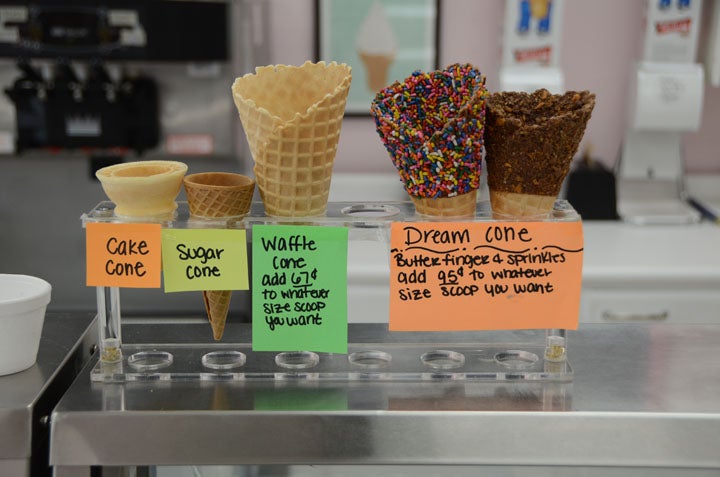 Cake
Cone
Sugar
cone
Waffle
Cone
add 67¢
to whatever
size scoop
you want
Dream cone
Butterfinger & sprinkles
add 95¢ to whatever
size scoop you want